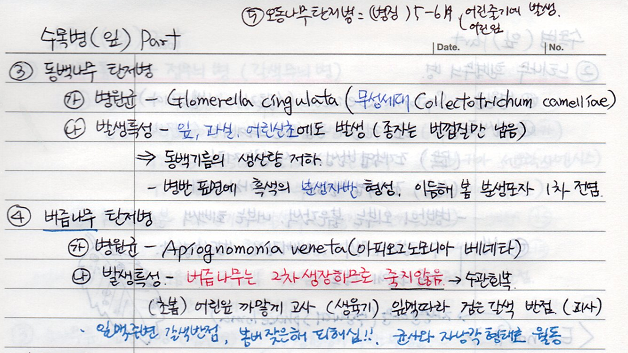 ⑤ 오동나무 탄저병 = (병징) 5-6月 (어린줄기에 발생.
어린잎
수목병(잎) Part
Date. No.
③ 동백나무 탄저병
㉮ 병원균 - Glomerella cingulata (무성세대 Collectotrichum camelliae)
㉯ 발생특성 - 잎, 과실, 어린신초에도 발생 (종자는 번껍질만 남음)
⇒ 동백기름의 생산량 저하
- 병반 표면에 흑색의 분생자반 형성, 이듬해 봄 분생포자 1차 전염.
④ 버즘나무 탄저병
㉮ 병원균 - Apiognomonia veneta (아피오그노모니아 베네타)
㉯ 발생특성 - 버즘나무는 2차 생장하므로 죽지않음 → 수관회복
(초봄) 어린잎 까맣게 고사 (생육기) 잎맥따라 검은 갈색 반점. (괴사)
· 잎맥주변 갈색반점, 봄비 잦은해 피해심!!. 균사와 자낭각 형태로 월동